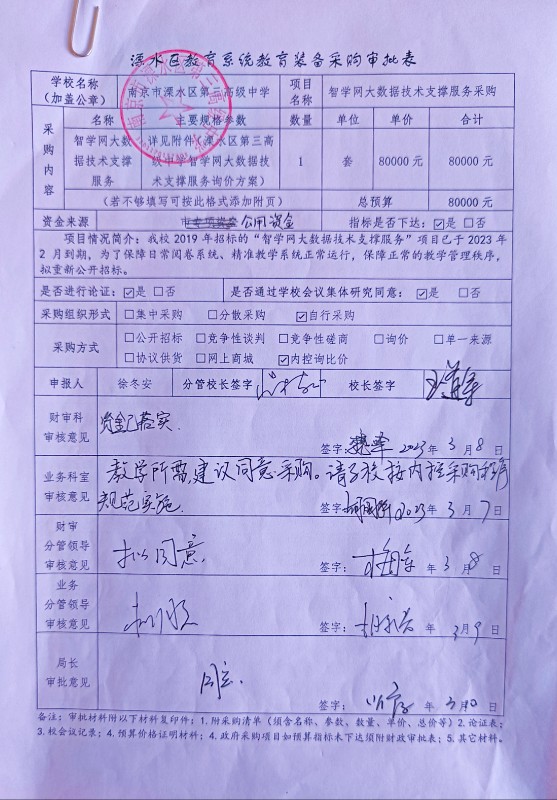 溧水区教育系统教育装备采购审批表
学校名称（加盖公章） 南京市溧水区第三高级中学 项目名称 智学网大数据技术支撑服务采购
采购内容 名称 主要规格参数 数量 单位 单价 合计
智学网大数据技术支撑服务 详见附件（溧水区第三高级中学智学网大数据技术支撑服务询价方案） 1 套 80000元 80000元
（若不够填写可按此格式添加附页） 总预算 80000元
资金来源 公用资金 指标是否下达：☑是 □否
项目情况简介：我校2019年招标的“智学网大数据技术支撑服务”项目已于2023年
2月到期，为了保障日常阅卷系统、精准教学系统正常运行，保障正常的教学管理秩序，
拟重新公开招标。
是否进行论证：☑是 □否 是否通过学校会议集体研究同意：☑是 □否
采购组织形式 □集中采购 □分散采购 ☑自行采购
采购方式 □公开招标 □竞争性谈判 □竞争性磋商 □询价 □单一来源
□协议供货 □网上商城 ☑内控询比价
申报人 徐冬安 分管校长签字 校长签字
财审科审核意见 资金已落实
签字： 2023年3月8日
业务科室审核意见 教学所需，建议同意采购。请学校按内控采购程序
规范实施。
签字： 2023年3月7日
财审分管领导审核意见 拟同意
签字： 年3月8日
业务分管领导审核意见
签字： 年3月9日
局长审批意见 同意.
签字： 年3月 日
备注：审批材料附以下材料复印件：1.附采购清单（须含名称、参数、数量、单价、总价等）2.论证表；
3.校会议记录；4.预算价格证明材料；4.政府采购项目如预算指标未下达须附财政审批表；5.其它材料。